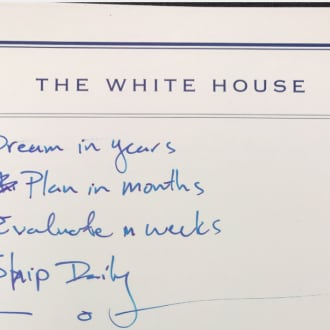 THE WHITE HOUSE
Dream in years
Plan in months
Evaluate in weeks
Ship Daily